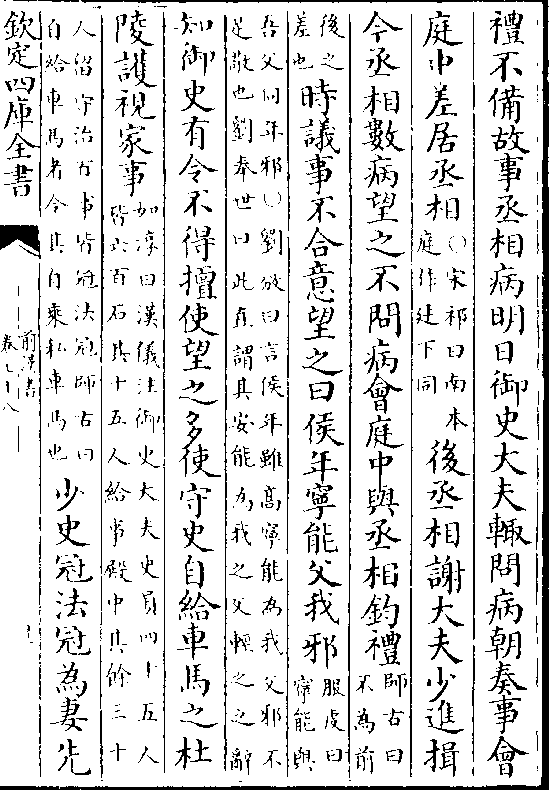 禮不備故事丞相病明日御史大夫輒問病朝奏事會
庭中差居丞相
○宋祁曰南本
庭作廷下同
後丞相謝大夫少進揖
今丞相數病望之不問病會庭中與丞相鈞禮
師古曰
不為前
後之
差也
時議事不合意望之曰侯年寧能父我邪
服虔曰
寧能與
吾父同年邪○劉攽曰言侯年雖高寧能為我父邪不
足敬也劉奉世曰此直謂其安能為我之父輕之之辭
知御史有令不得擅使望之多使守史自給車馬之杜
陵護視家事
如淳曰漢儀注御史大夫史員四十五人
皆六百石其十五人給事殿中其餘三十
人留守治百事皆冠法冠師古曰
自給車馬者令其自乘私車馬也
少史冠法冠為妻先
欽定四庫全書
前漢書
卷七十八